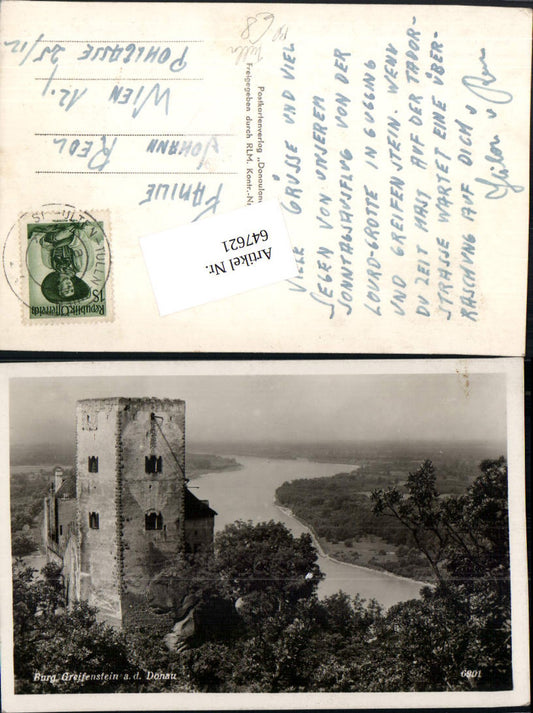 VIELE GRÜSSE UND VIEL
SEGEN VON UNSEREM
SONNTAGSAUSFLUG VON DER
LOURD-GROTTE IN GUGGING
UND GREIFENSTEIN. WENN
DU ZEIT HAST AUF DER TABOR-
STRASSE WARTET EINE ÜBER-
RASCHUNG AUF DICH
Postkartenverlag „Donauland
Freigegeben durch RLM. Kontr.-Nr
FAMILIE
JOHANN REDL
WIEN 12./
POHLGASSE 25/12
Artikel Nr.
647621
1S
Republik Österreich
Burg Greifenstein a. d. Donau
6801